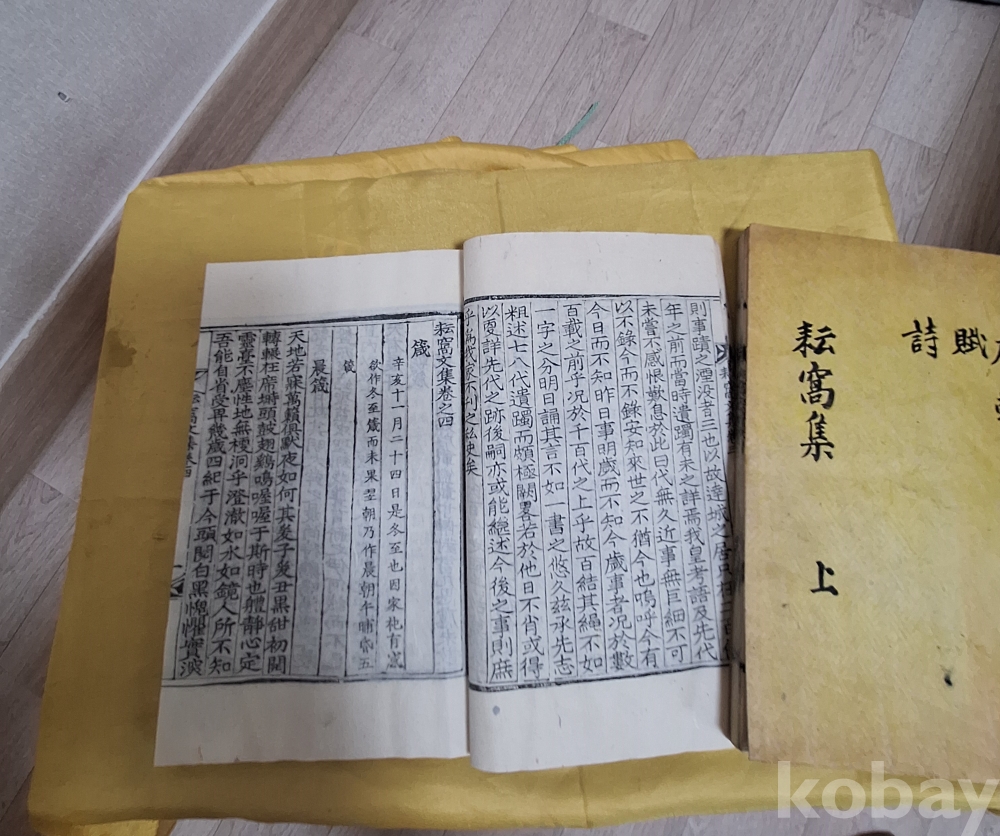 則事蹟之湮没者三也以故達城之居
年之前而當時遺躅有未之詳焉我皇考語及先代
未嘗不感恨歎息於此曰代無久近事無巨細不可
以不錄今而不錄安知來世之不猶今也嗚呼今有
今日而不知昨日事明歲而不知今歲事者况於數
百載之前乎况於千百代之上乎故百結其繩不如
一字之分明日誦其言不如一書之悠久玆承先志
粗述七八代遺躅而頗極闕畧若於他日不肖或得
以叓詳先代之跡後嗣亦或能繼述今後之事則庶
乎爲我家不刊之私史矣
耘窩文集卷之四
箴
辛亥十一月二十四日是冬至也因家祂有寃
欲作冬至箴而未果翌朝乃作晨朝午晡昏五
箴
晨箴
天地若寐萬籟俱默夜如何其亥子叓丑黑甜初開
轉輾枕席塒頭鼓翅鷄鳴喔喔于斯時也軆靜心定
靈臺不塵性地無梗洞乎澄澈如水如鏡人所不知
吾能自省受再幾歲四紀于今頭関白黑愧懼實深
耘窩文集卷四
賦
詩
耘窩集 上
kobay